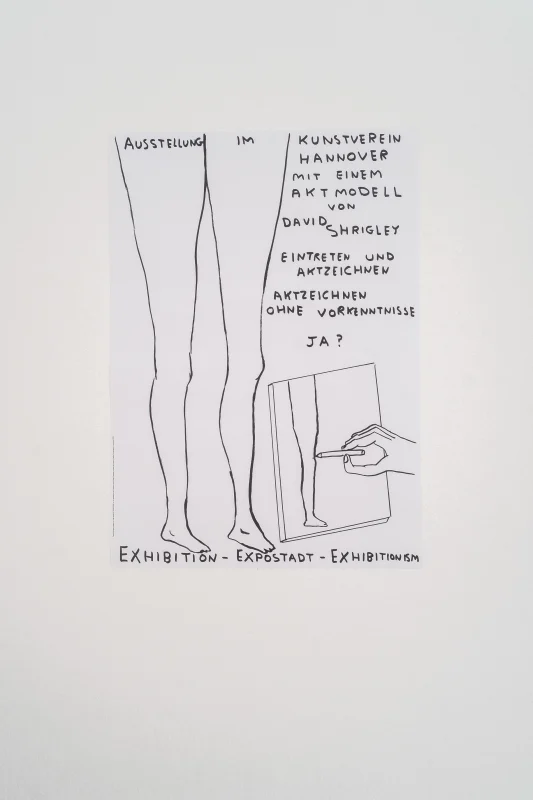 AUSSTELLUNG IM KUNSTVEREIN
HANNOVER
MIT EINEM
AKTMODELL
VON
DAVID SHRIGLEY
EINTRETEN UND
AKTZEICHNEN
AKTZEICHNEN
OHNE VORKENNTNISSE
JA?
EXHIBITION - EXPOSTADT - EXHIBITIONISM